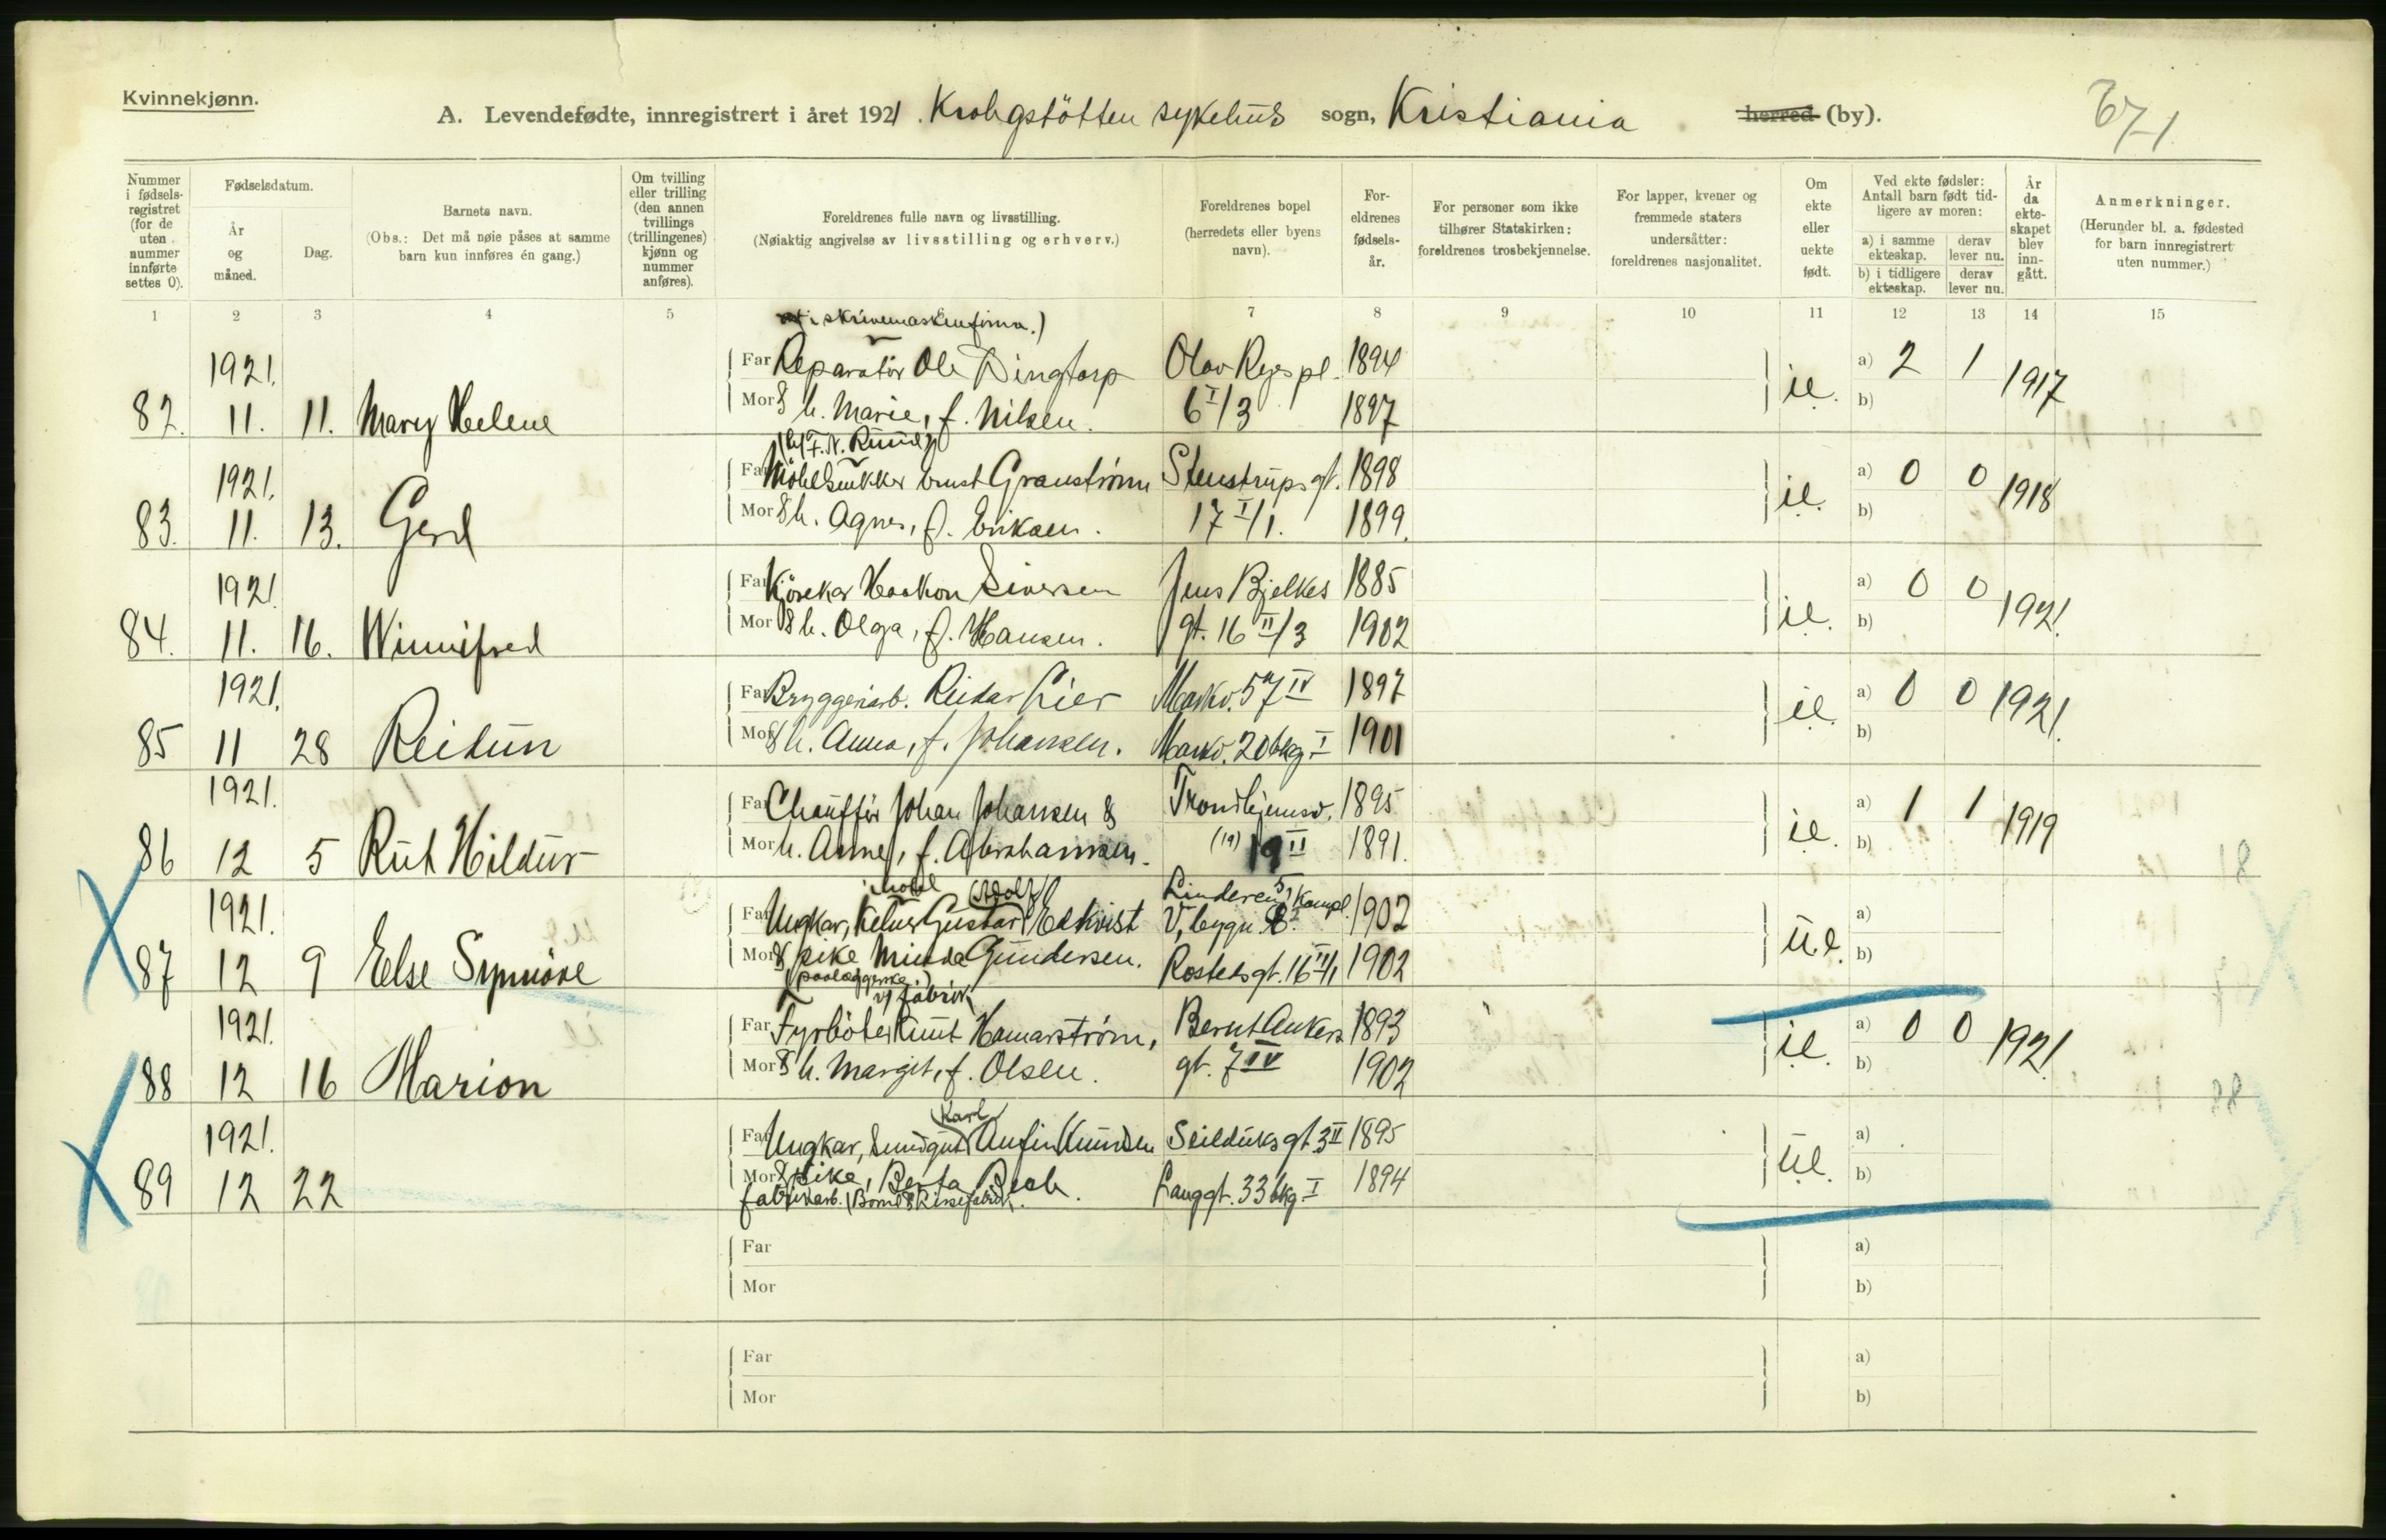 Kvinnekjønn.
A. Levendefødte, innregistrert i året 1921. Krohgstötten sykehus sogn, Kristiania herred (by).
Nummer i fødsels-registret (for de uten nummer innførte settes 0).
Fødselsdatum.
År og måned.
Dag.
Barnets navn.
(Obs.: Det må nøie påses at samme barn kun innføres én gang.)
Om tvilling eller trilling (den annen tvillings (trillingenes) kjønn og nummer anføres).
Foreldrenes fulle navn og livsstilling.
(Nøiaktig angivelse av livsstilling og erhverv.)
Foreldrenes bopel (herredets eller byens navn).
For-eldrenes fødsels-år.
For personer som ikke tilhører Statskirken: foreldrenes trosbekjennelse.
For lapper, kvener og fremmede staters undersåtter: foreldrenes nasjonalitet.
Om ekte eller uekte født.
Ved ekte fødsler: Antall barn født tid-ligere av moren:
a) i samme ekteskap.
derav lever nu.
b) i tidligere ekteskap.
derav lever nu.
År da ekte-skapet blev inn-gått.
Anmerkninger.
(Herunder bl. a. fødested for barn innregistrert uten nummer.)
1 2 3 4 5 7 8 9 10 11 12 13 14 15
i skrivemaskinfirma.)
1921. Far Reparatör Ole Dingtorp Olav Ryes pl. 1894 a) 2 1
82. 11. 11. Mary Helene Mor & h. Marie, f. Nilsen. 6 I/3 1897 ie. b) 1917
1921. Far Möbelsnekker Ernst Granström Stenstrups gt. 1898 a) 0 0
83. 11. 13. Gerd Mor & h. Agnes, f. Eriksen. 17 I/1. 1899. ie. b) 1918
1921. Far Kjörekar Haakon Siversen Jens Bjelkes 1885 a) 0 0
84. 11. 16. Winnifred Mor & h. Olga, f. Hansen. gt. 16 II/3 1902 ie. b) 1921.
1921. Far Bryggeriarb. Reidar Lier Markv. 57 IV 1897 a) 0 0
85 11 28 Reidun Mor & h. Anna, f. Johansen. Markv. 20 bkg. I 1901 ie. b) 1921.
1921. Far Chaufför Johan Johansen & Trondhjemsv. 1895 a) 1 1
86 12 5 Rut Hildur Mor h. Anne, f. Abrahamsen. (19) 19 II 1891. ie. b) 1919
1921. Far Ungkar, Kelner Gustav Edkvist 1902 a)
87 12 9 Else Synnöve Mor & pike Gundersen. Rosteds gt. 16 III/1 1902 u.e. b)
v/ fabrik
1921. Far Fyrböter Knut Hamarström, Bernt Ankers 1893 a) 0 0
88 12 16 Marion Mor & h. Margit, f. Olsen. gt. 7 IV 1902 ie. b) 1921.
Karl
1921. Far Ungkar, Anfin Knudsen Seilduks gt. 3 II 1895 a)
89 12 22 Mor & pike, Berta Langgt. 33 bkg. I 1894 u.e. b)
fabrikarb.
Far a)
Mor b)
Far a)
Mor b)